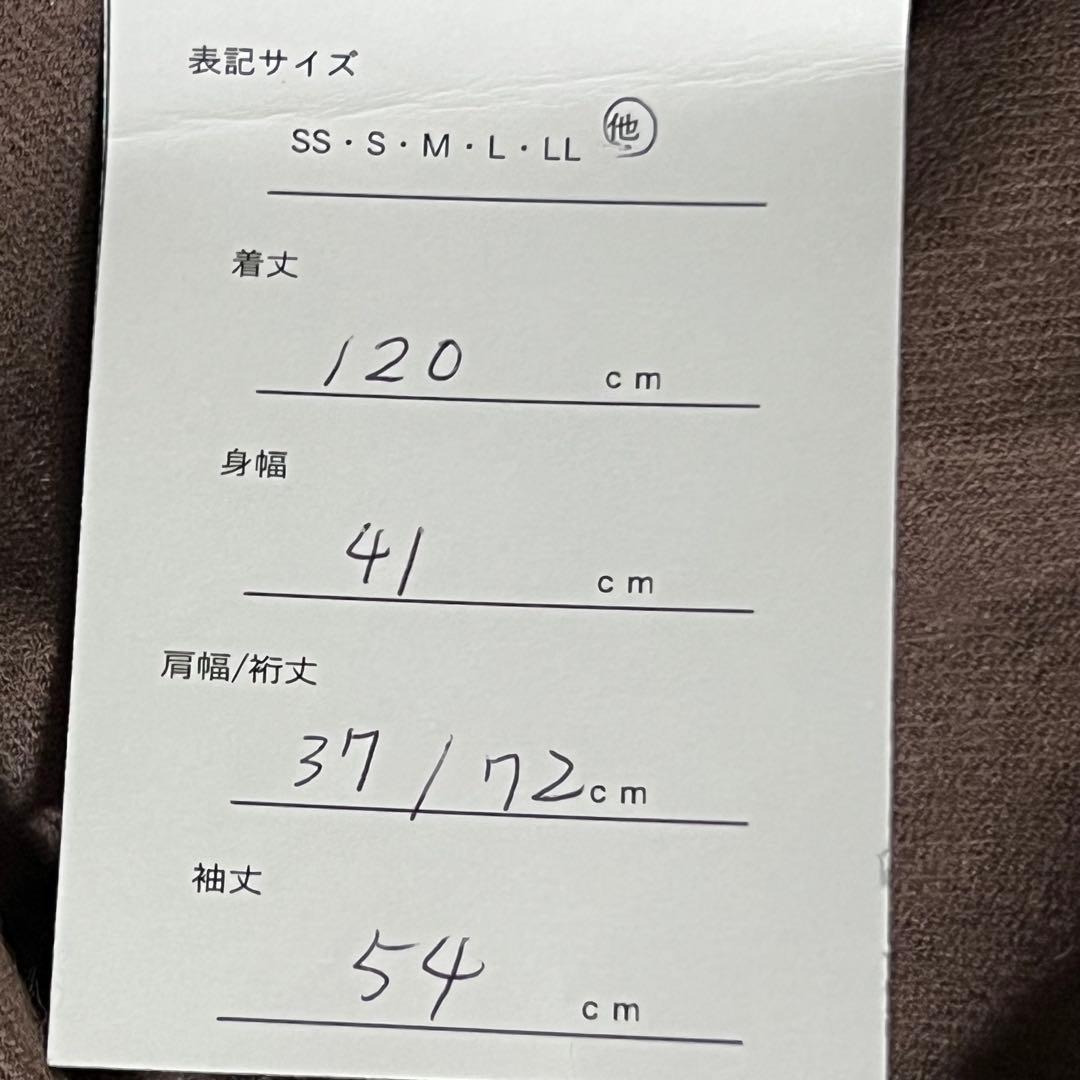 表記サイズ
SS・S・M・L・LL 他
着丈
120 cm
身幅
41 cm
肩幅/裄丈
37 / 72cm
袖丈
54 cm